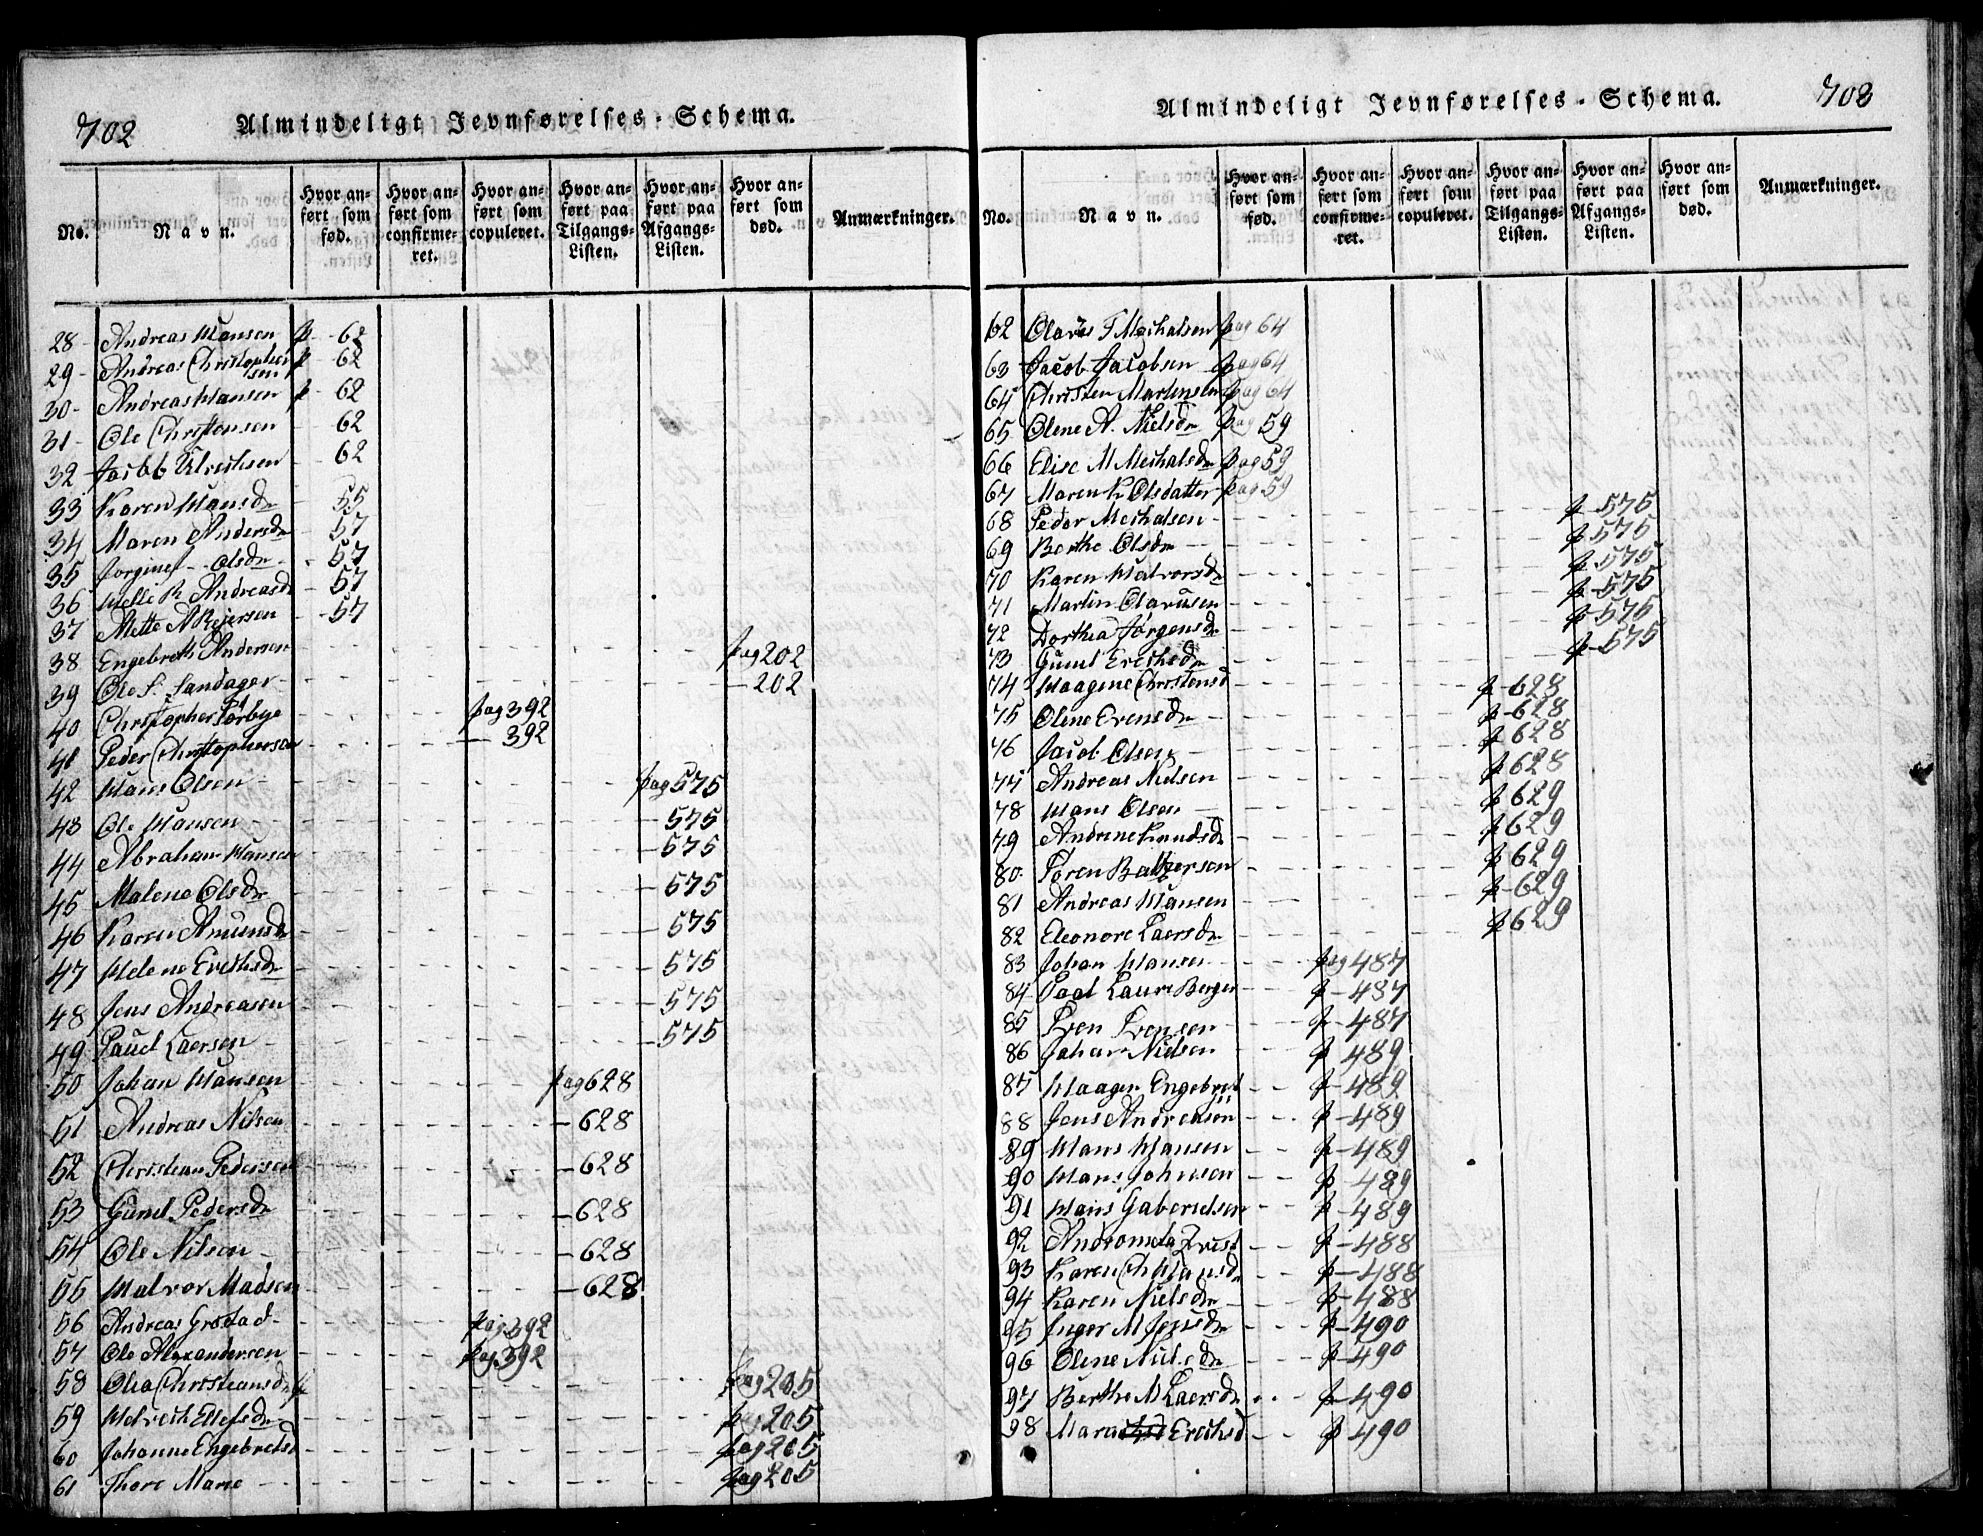 702
Almindeligt Jevnførelses-Schema.
No.
Navn.
Hvor anført som fød.
Hvor anført som confirmeret.
Hvor anført som copuleret.
Hvor anført paa Tilgangs-Listen.
Hvor anført paa Afgangs-Listen.
Hvor anført som død.
Anmærkninger.
28 - Andreas Hansen p - 62
29 - Andreas Christophersen p 62
30 - Andreas Hansen p - 62
31 - Ole Christensen 62
32 Jacob Ulrichsen 62
33 Karen Hansdr 55
34 Maren Andersdr - 57
35 Jorgine Olsdr - 57
36 Helle K Andreasd - 57
37 Mette A Reiersen - 57
38 Engebreth Andersen pag 202
39 Ole S. Sandager - 202
40 Christopher Torbye pag 392
41 Peder Christophersen - 392
42 Hans Olsen pag 575
43 Ole Hansen - 575
44 Abraham Hansen - 575
45 Malene Olsdr - 575
46 Karen Amunsdr - 575
47 Helene Erichsdr - 575
48 Jens Andreasen - 575
49 Paul Laersen - 575
50 Johan Hansen pag 628
51 Andreas Nilsen - 628
52 Christian Pedersen - 628
53 Gunil Pedersdr - 628
54 Ole Nilsen - 628
55 Halvor Madsen - 628
56 Andreas Grostad pag 392
57 Ole Alexandersen pag 392
58 Olea Christiansdr pag 205
59 Helvich Ellefsdr pag 205
60 Johanne Engebretsd pag 205
61 Thore Marie pag 205
Almindeligt Jevnførelses-Schema.
703
No.
Navn.
Hvor anført som fød.
Hvor anført som confirmeret.
Hvor anført som copuleret.
Hvor anført paa Tilgangs-Listen.
Hvor anført paa Afgangs-Listen.
Hvor anført som død.
Anmærkninger.
62 Olaves T Michalsen pag 64
63 Jacob Jacobsen pag 64
64 Christen Martinsen pag 64
65 Olene A. Nielsdr pag 59
66 Elise M Michalsdr pag 59
67 Maren K Olsdatter pag 59
68 Peder Michalsen p - 575
69 Berthe Olsdr p 575
70 Karen Halvorsdr p - 575
71 Martin Olavesen p - 575
72 Dorthea Jørgensdr p - 575
73 Gunil Erichsdr p - 575
74 Haagine Christensd p - 628
75 Oline Evensdr p - 628
76 Jacob Olsen p 628
77 Andreas Nielsen p 628
78 Hans Olsen p 629
79 Andrine Knudsdr p 629
80 Søren Baltzersen p 629
81 Andreas Hansen p - 629
82 Eleonore Laersdr p 629
83 Johan Hansen pag 487
84 Paal Laurs Berger p - 487
85 Even Evensen p - 487
86 Johan Nielsen p 489
87 Haagen Engebret p - 489
88 Jens Andreasen p - 489
89 Hans Hansen p - 489
90 Hans Johnsen p - 489
91 Hans Gabrielsen p - 489
92 p - 488
93 Karen Ch Hansdr p - 488
94 Karen Nielsdr p - 488
95 Inger M Jensdr p - 490
96 Olene Nielsdr p - 490
97 Berthe M Laersdr p - 490
98 Maren Erichsd p - 490